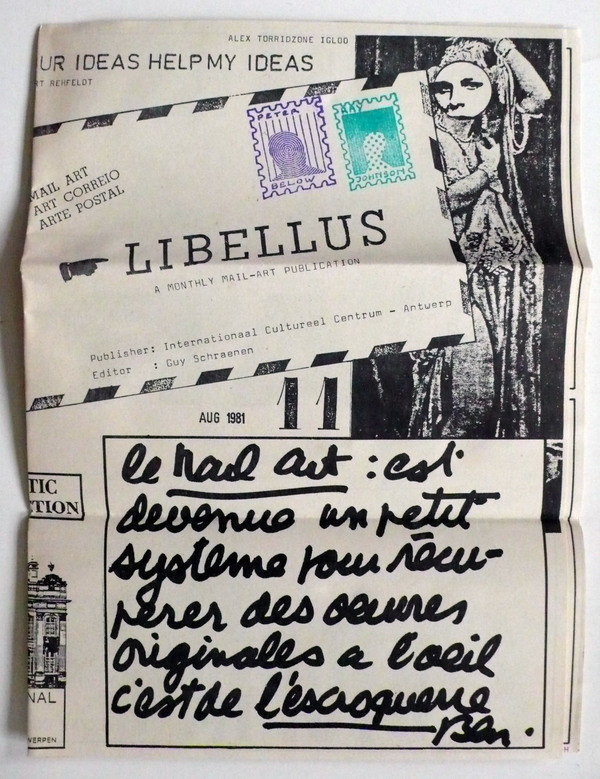 ALEX TORRIDZONE IGLOO
UR IDEAS HELP MY IDEAS
RT REHFELDT
PETER
BELOW
RAY
JOHNSON
MAIL ART
ART CORREIO
ARTE POSTAL
LIBELLUS
A MONTHLY MAIL-ART PUBLICATION
Publisher: Internationaal Cultureel Centrum - Antwerp
Editor : Guy Schraenen
AUG 1981
11
TIC
CTION
NAL
WERPEN
le Mail Art : est
devenue un petit
système pour récu-
perer des oeuvres
originales a l'oeil
c'est de l'éscroquerie
Ben.
H